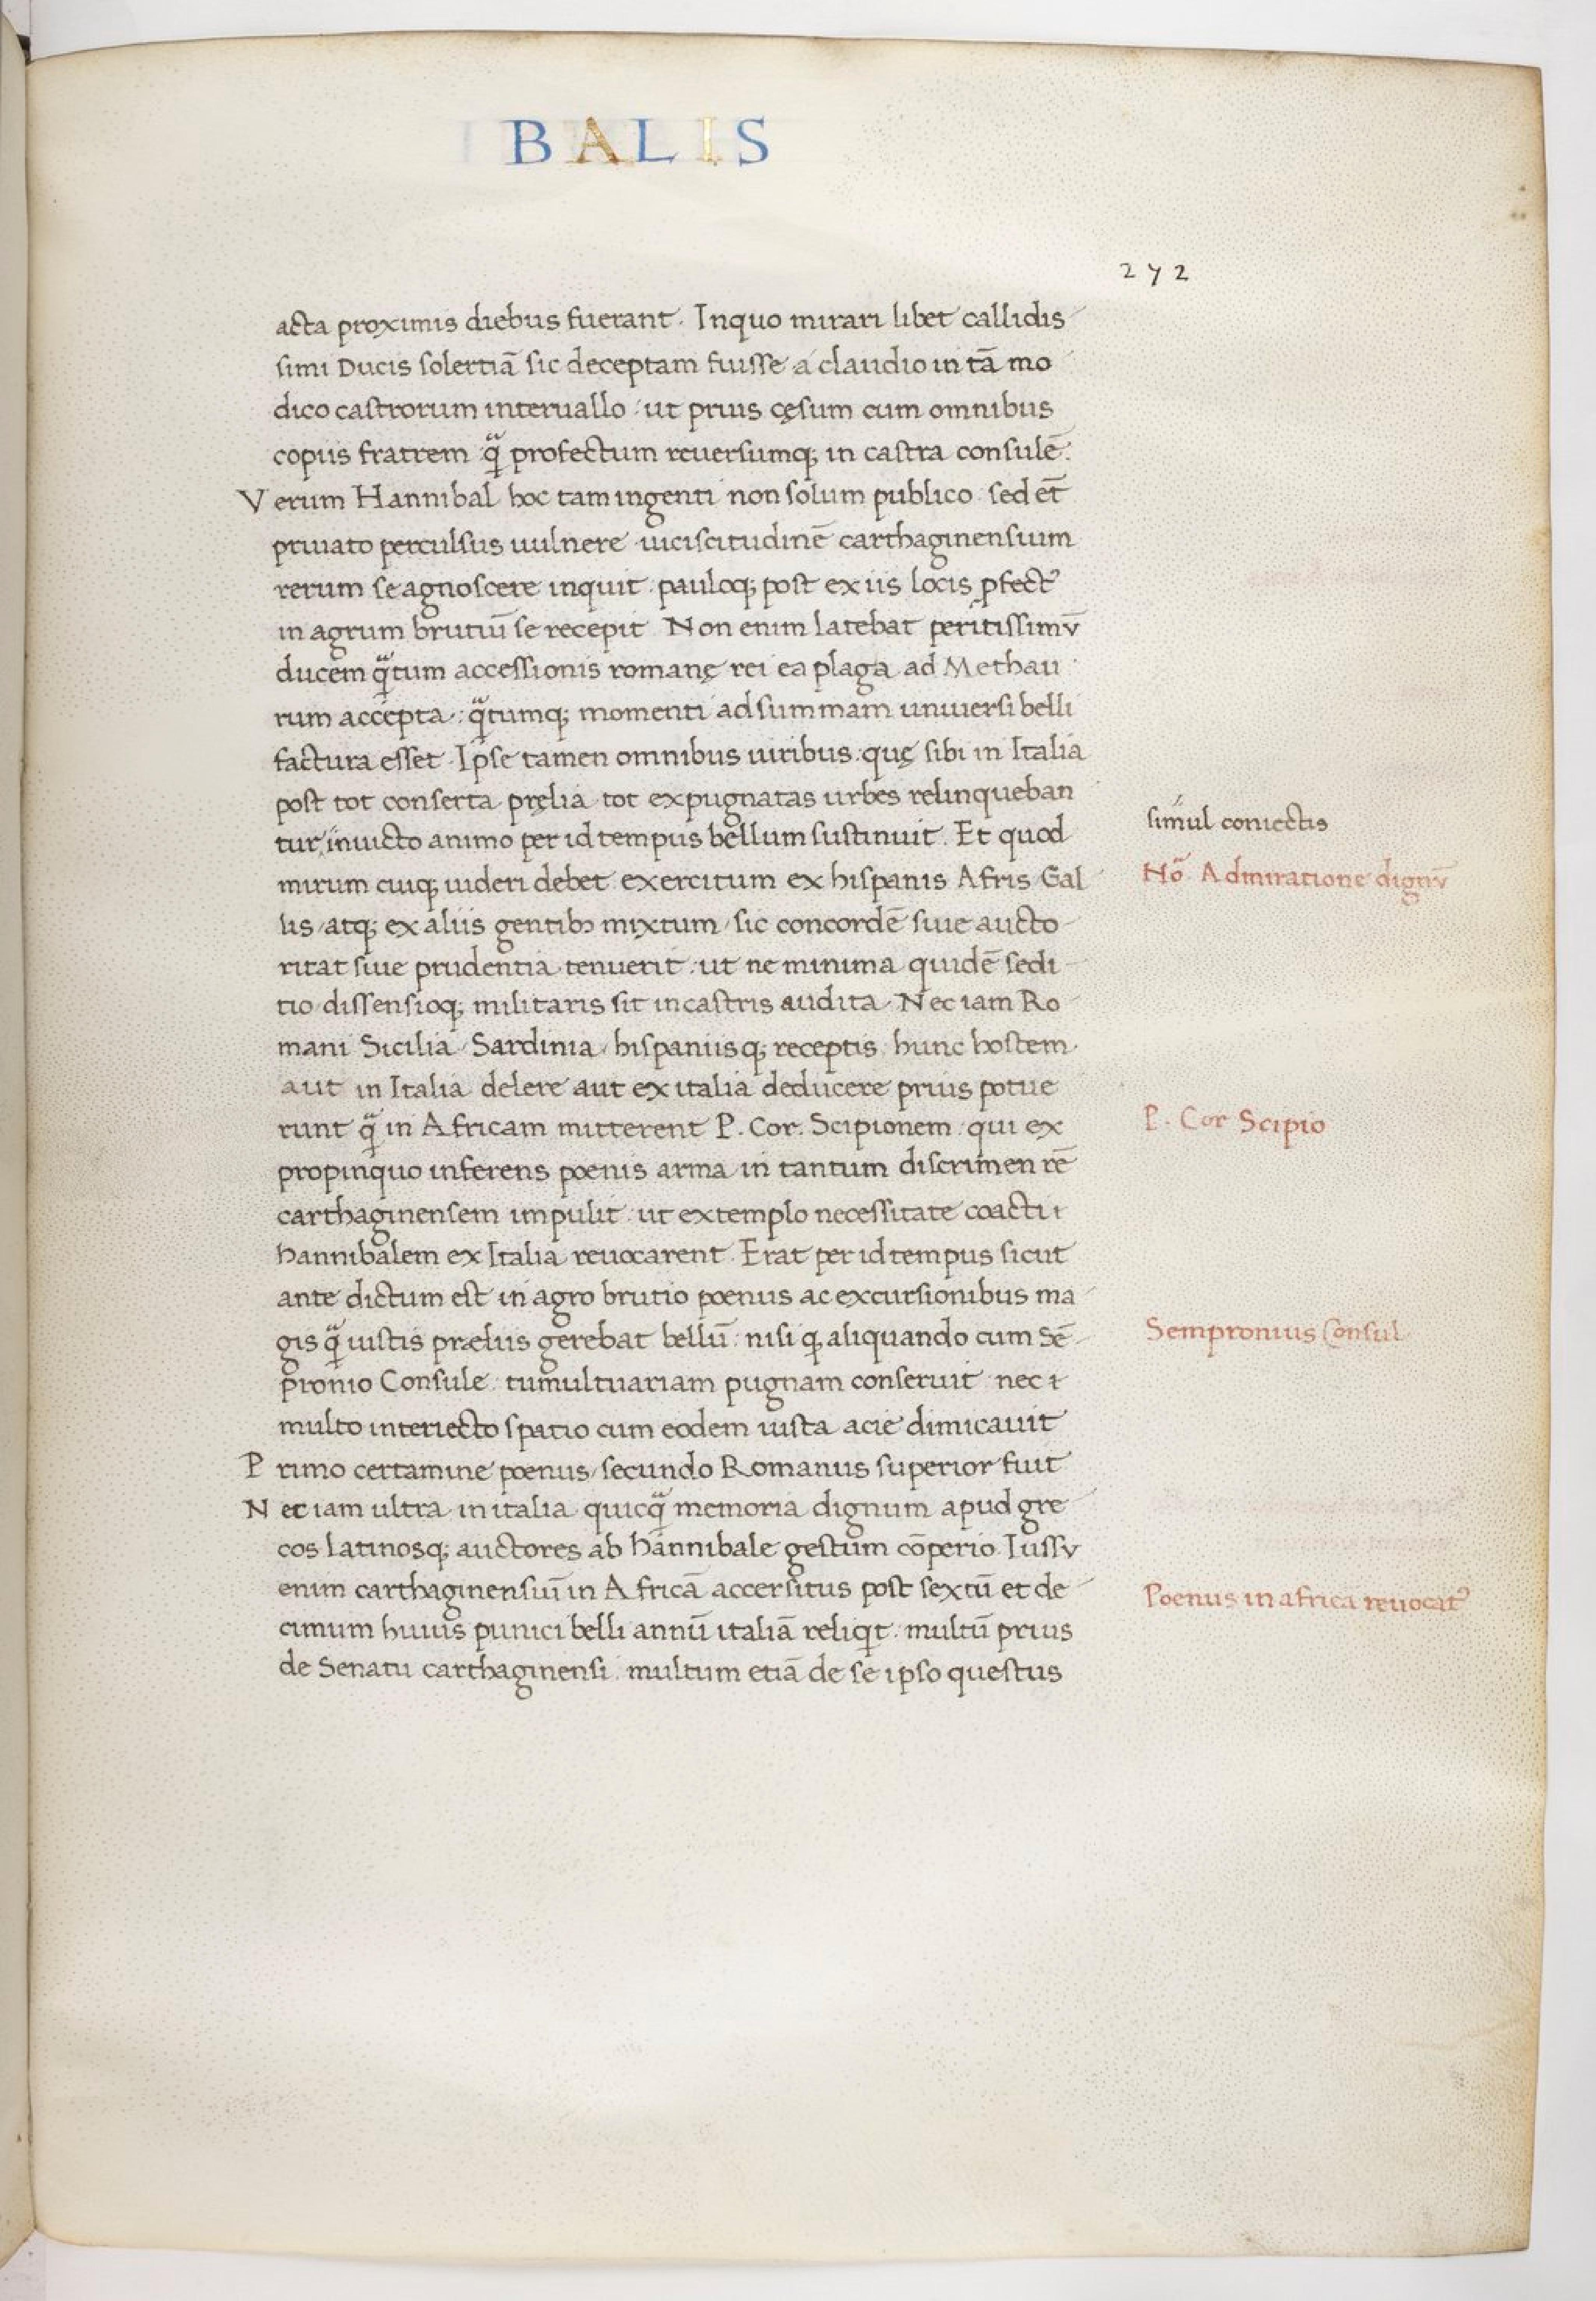 BALIS
272
acta proximis diebus fuerant. Inquo mirari libet callidis
simi Ducis solertiā sic deceptam fuisse a claudio in tā mo
dico castrorum interuallo: ut prius cęsum cum omnibus
copiis fratrem qͣ profectum reuersumq; in castra consulē.
Verum Hannibal hoc tam ingenti non solum publico sed et̄
priuato perculsus uulnere uiciscitudinē carthaginensium
rerum se agnoscere inquit: pauloq; post ex iis locis ꝓfectꝰ
in agrum brutiū se recepit Non enim latebat peritissimv̄
ducem qͣtum accessionis romanę rei ea plaga ad Methau
rum accepta: qͣtumq; momenti ad summam uniuersi belli
factura esset. Ipse tamen omnibus uiribus: quę sibi in Italia
post tot conserta pręlia tot expugnatas urbes relinqueban
tur inuicto animo per id tempus bellum sustinuit. Et quod
simul coniectis
mirum cuiq; uideri debet exercitum ex hispanis Afris Gal
Nō Admiratione dignv̄
lis atq; ex aliis gentibꝫ mixtum sic concordē siue aucto
ritat siue prudentia tenuerit: ut ne minima quidē sedi
tio dissensioq; militaris sit incastris audita. Nec iam Ro
mani Sicilia Sardinia hispaniisq; receptis hunc hostem
aut in Italia delere aut ex italia deducere prius potue
runt qͣ in Africam mitterent P. Cor. Scipionem: qui ex
P. Cor Scipio
propinquo inferens poenis arma in tantum discrimen rē
carthaginensem impulit: ut extemplo necessitate coacti
hannibalem ex Italia reuocarent. Erat per id tempus sicut
ante dictum est in agro brutio poenus ac excursionibus ma
gis qͣ iustis præliis gerebat bellū: nisi ꝙ aliquando cum Sē
Sempronius Consul
pronio Consule tumultuariam pugnam conseruit nec
multo interiecto spatio cum eodem iusta acie dimicauit
Primo certamine poenus secundo Romanus superior fuit
Nec iam ultra in italia quicqͣ memoria dignum apud gre
cos latinosq; auctores ab hannibale gestum cōperio Iussv
enim carthaginensiū in Africā accersitus post sextū et de
Poenus in africa reuocatꝰ
cimum huius punici belli annū italiā reliqit: multū prius
de Senatu carthaginensi: multum etiā de se ipso questus